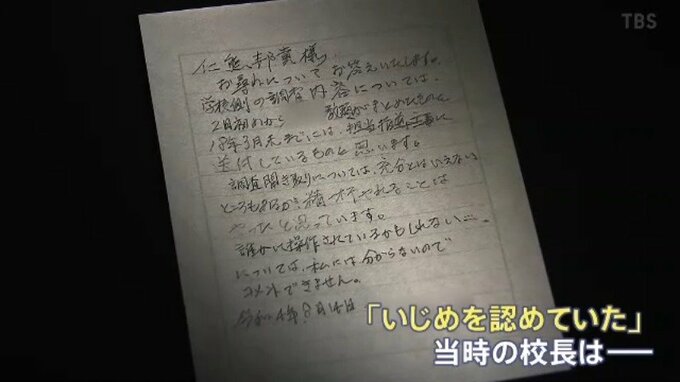 TBS
様
お尋ねについてお答えいたします。
学校側の調査内容については、
2月初めから 教頭がまとめたものを
18年3月末までには、担当指導主事に
送付しているものと思います。
調査聞き取りについては、充分とはいえない
ところもあるが精一杯やれることは
やったと思っています。
誰かに操作されているかもしれない…
については、私には分からないので
コメントできません。
令和4年8月14日
「いじめを認めていた」
当時の校長は──